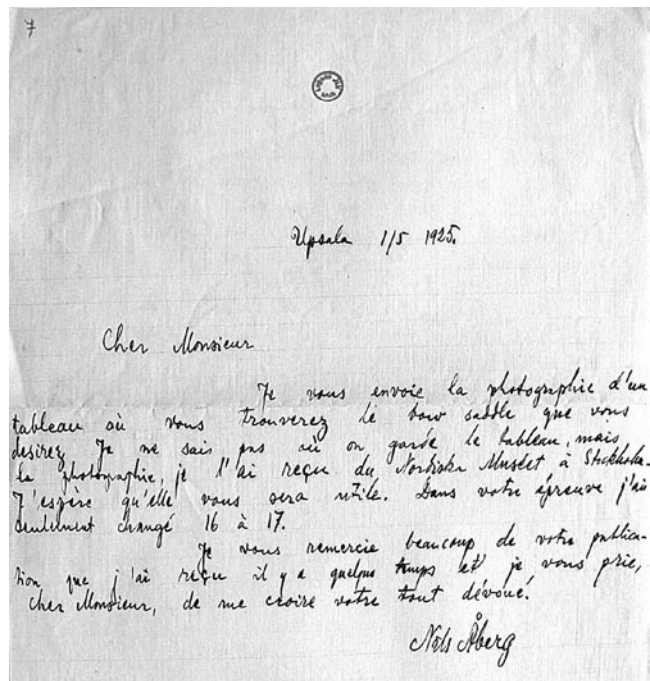 7
Upsala 1/5 1925.
Cher Monsieur
Je vous envoie la photographie d'un
tableau où vous trouverez le bow saddle que vous
desirez. Je ne sais pas où on garde le tableau, mais
la photographie, je l'ai reçu du Nordiska Muséet à Stockholm.
J'espère qu'elle vous sera utile. Dans votre épreuve j'ai
seulement changé 16 à 17.
Je vous remercie beaucoup de votre publica-
tion que j'ai reçu il y a quelque temps et je vous prie,
cher Monsieur, de me croire votre tout dévoué.
Nils Åberg